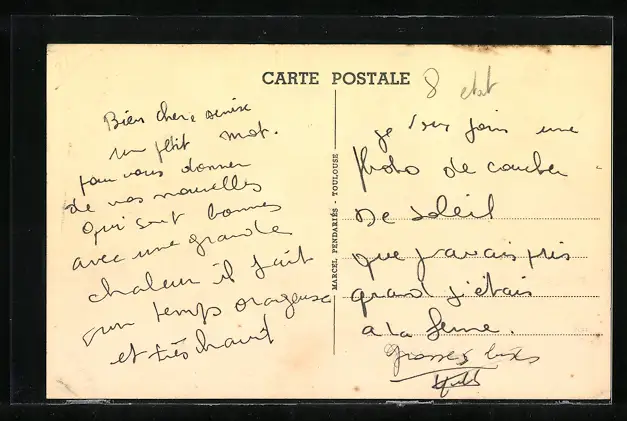 CARTE POSTALE
8
Bien chere Denise
un petit mot.
pour vous donner
de vos nouvelles
qui sont bonnes
avec une grande
chaleur il fait
un temps orageuse
et très chaud
MARCEL PENDARIÈS - TOULOUSE
je joins une
photo de coucher
de soleil
que j'avais pris
quand j'étais
a la ferme.
Grosses